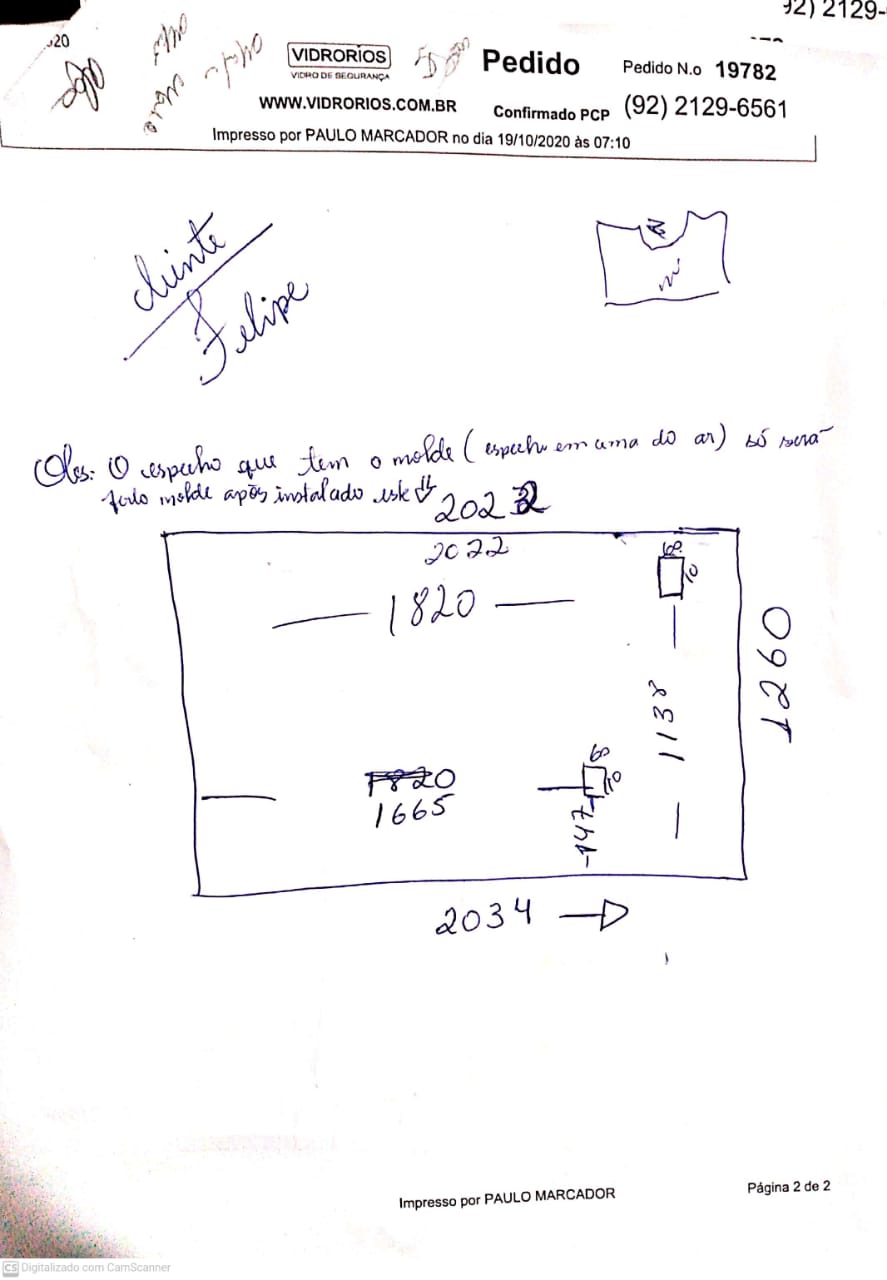 92) 2129-
20
VIDRORIOS
VIDRO DE SEGURANÇA
Pedido
Pedido N.o 19782
WWW.VIDRORIOS.COM.BR
Confirmado PCP (92) 2129-6561
Impresso por PAULO MARCADOR no dia 19/10/2020 às 07:10
cliente
Felipe
Obs: O espelho que tem o molde (espelho em cima do ar) só será
feito molde após instalado este
2022
2022
1820
10
1138
1260
1820
1665
10
147
2034
Impresso por PAULO MARCADOR
Página 2 de 2
CS Digitalizado com CamScanner